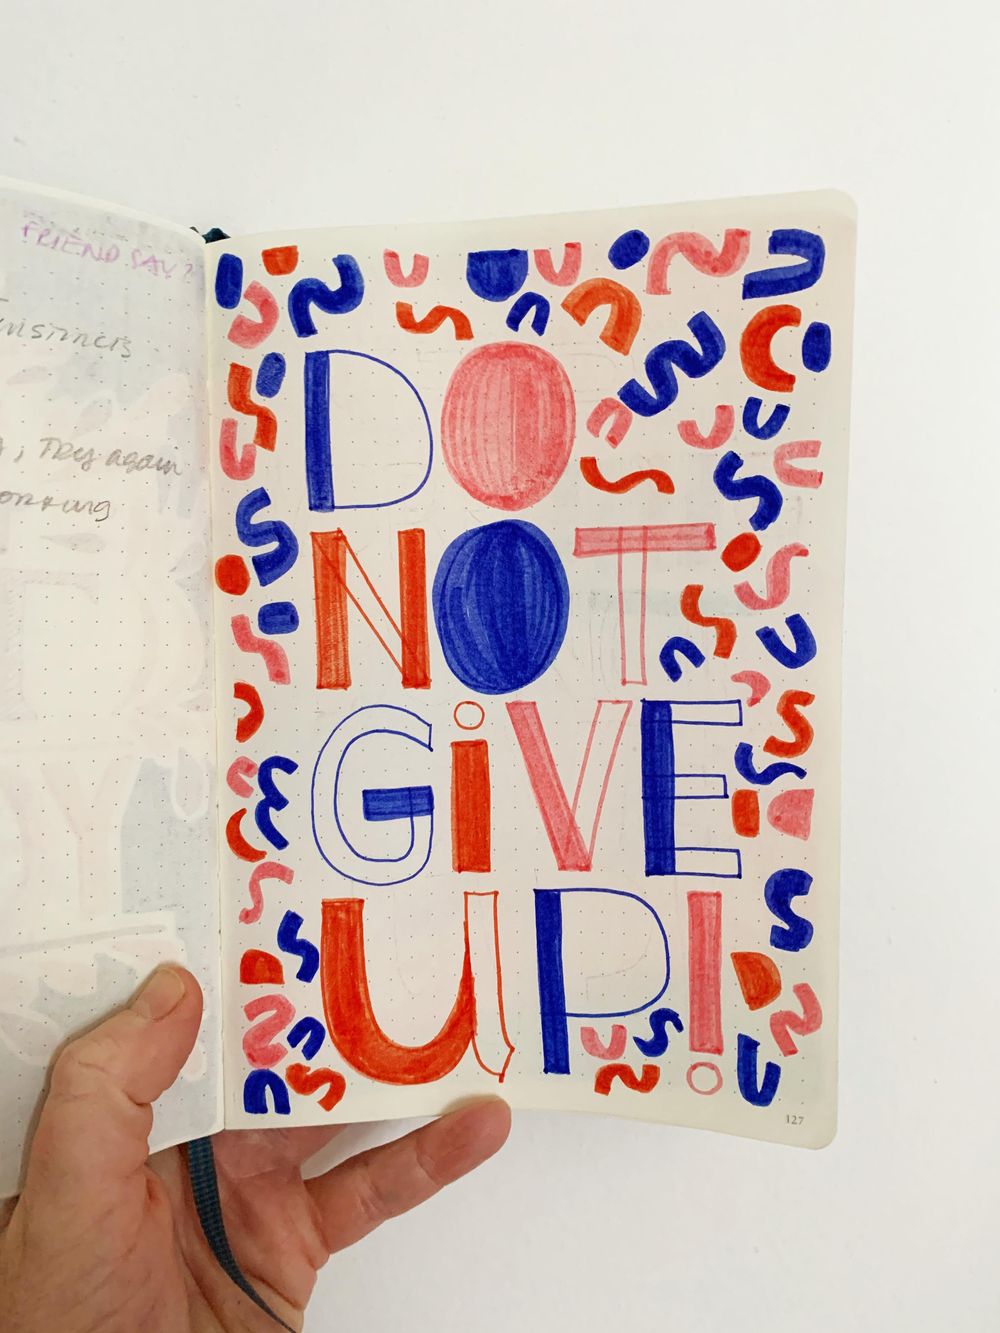 FRIEND SAY?
instincts
, Try again
DO
NOT
GiVE
UP!
127